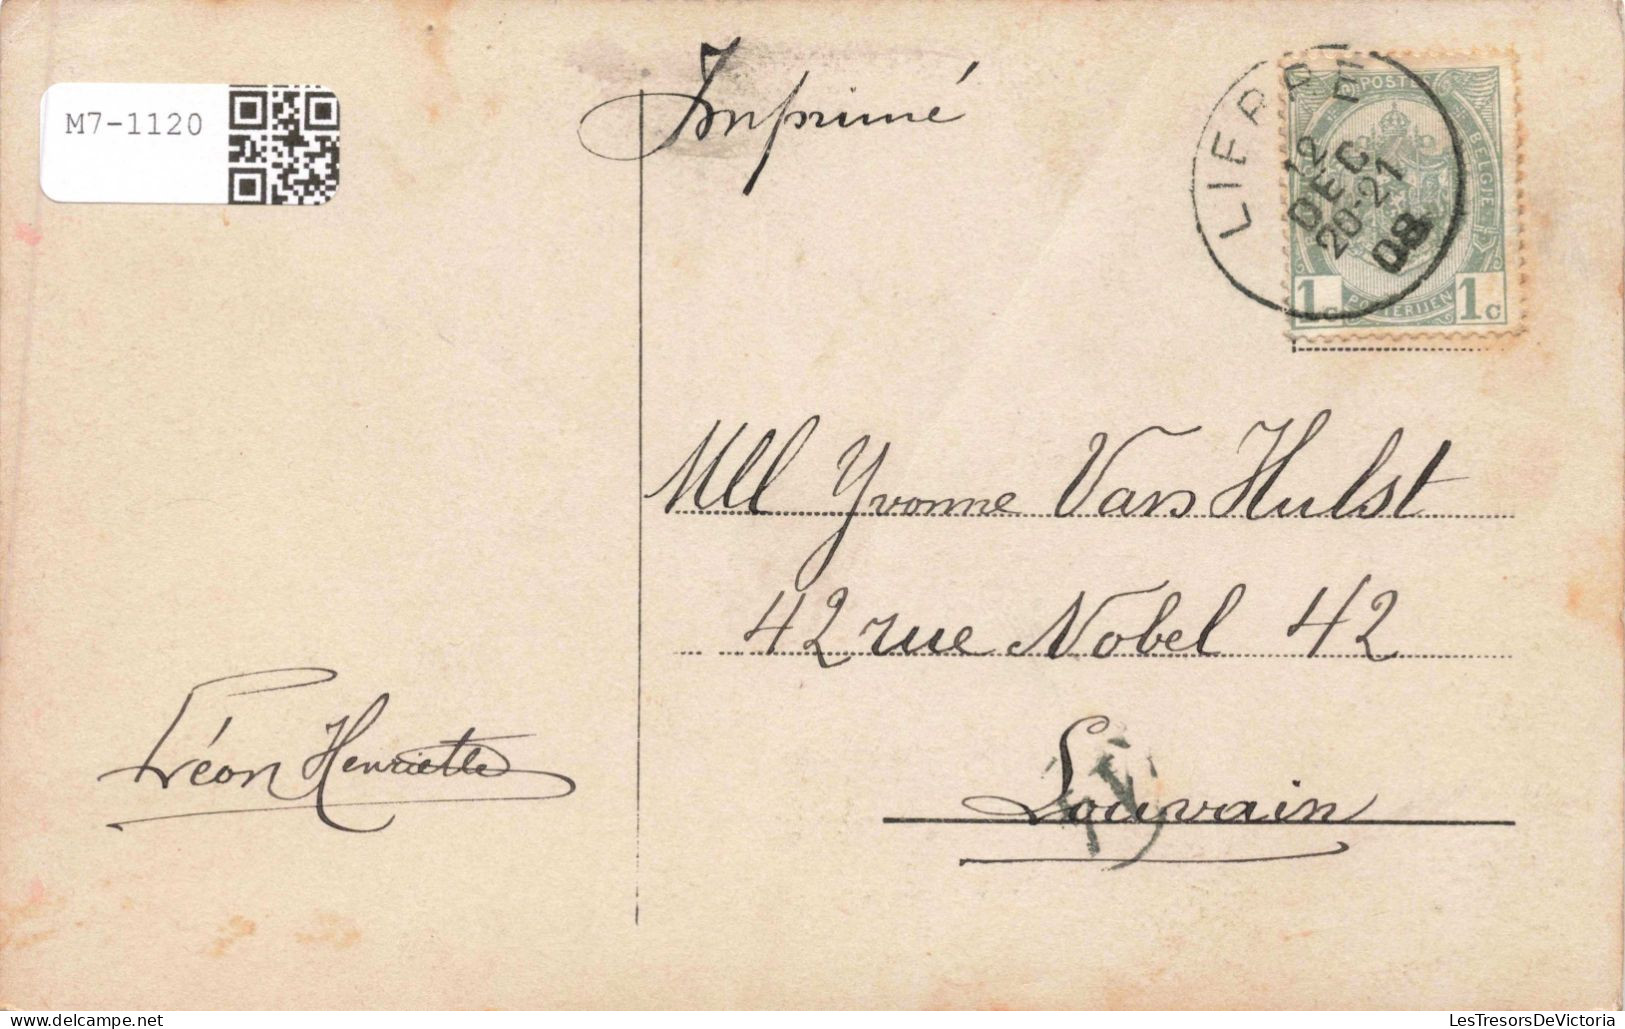 M7-1120
Imprimé
LIERRE
12
DEC
20-21
08
POSTES
BELGIË
1c POSTERIJEN 1c
Mll Yvonne Van Hulst
42 rue Nobel 42
Léon Henriette
Louvain
LesTresorsDeVictoria